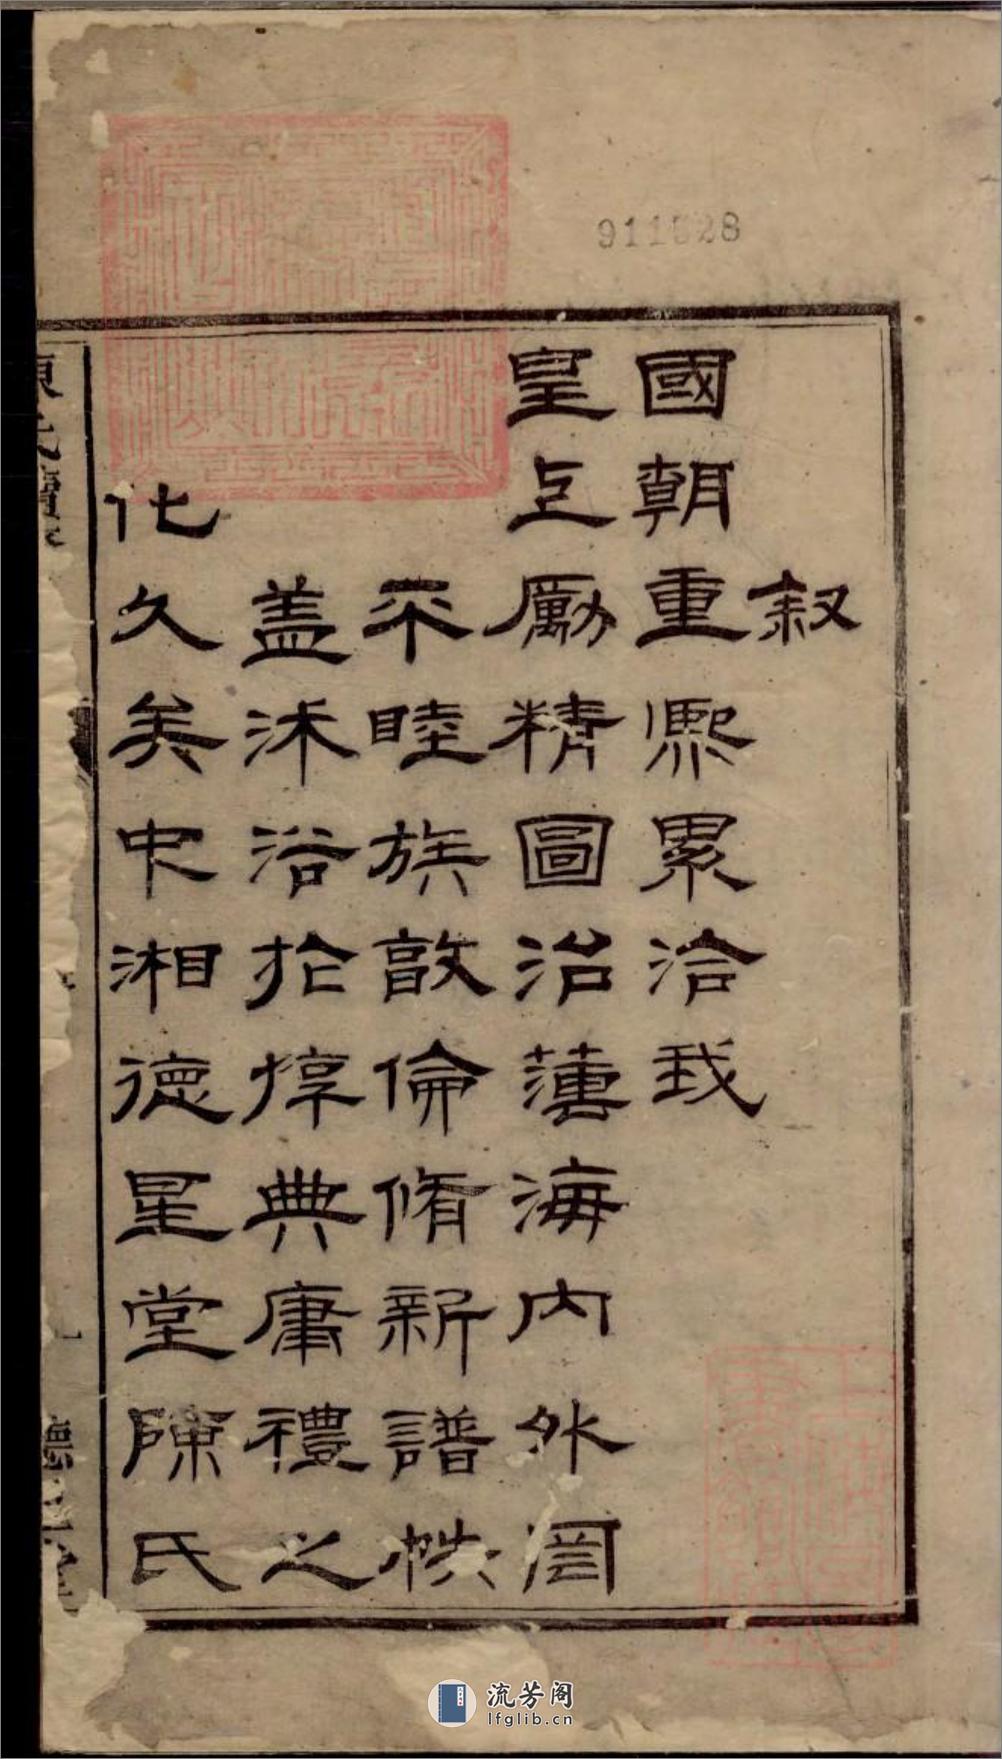 911528
叙
國朝重熙累洽我
皇上厲精圖治薄海内外罔
不睦族敦倫脩新譜帙
蓋沐浴於惇典庸禮之
化久矣中湘德星堂陳氏
陳氏續
德星堂
流芳阁
lfglib.cn